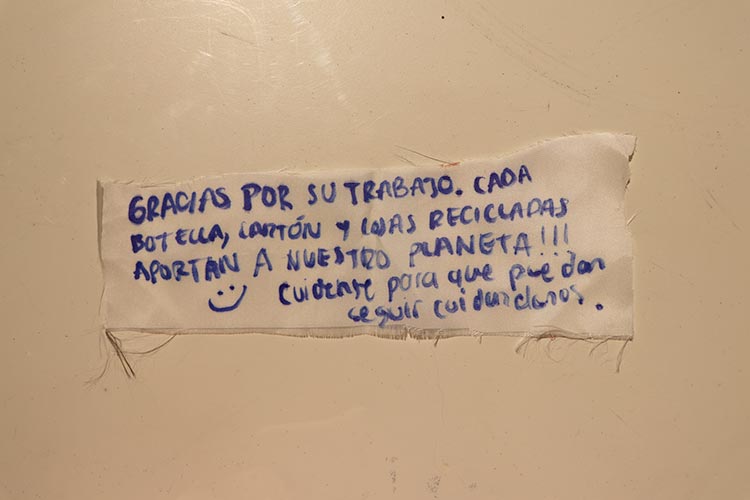 GRACIAS POR SU TRABAJO. CADA
BOTELLA, CARTÓN Y COJAS RECICLADAS
APORTAN A NUESTRO PLANETA!!!
:) Cuidense para que puedan
seguir cuidandonos.